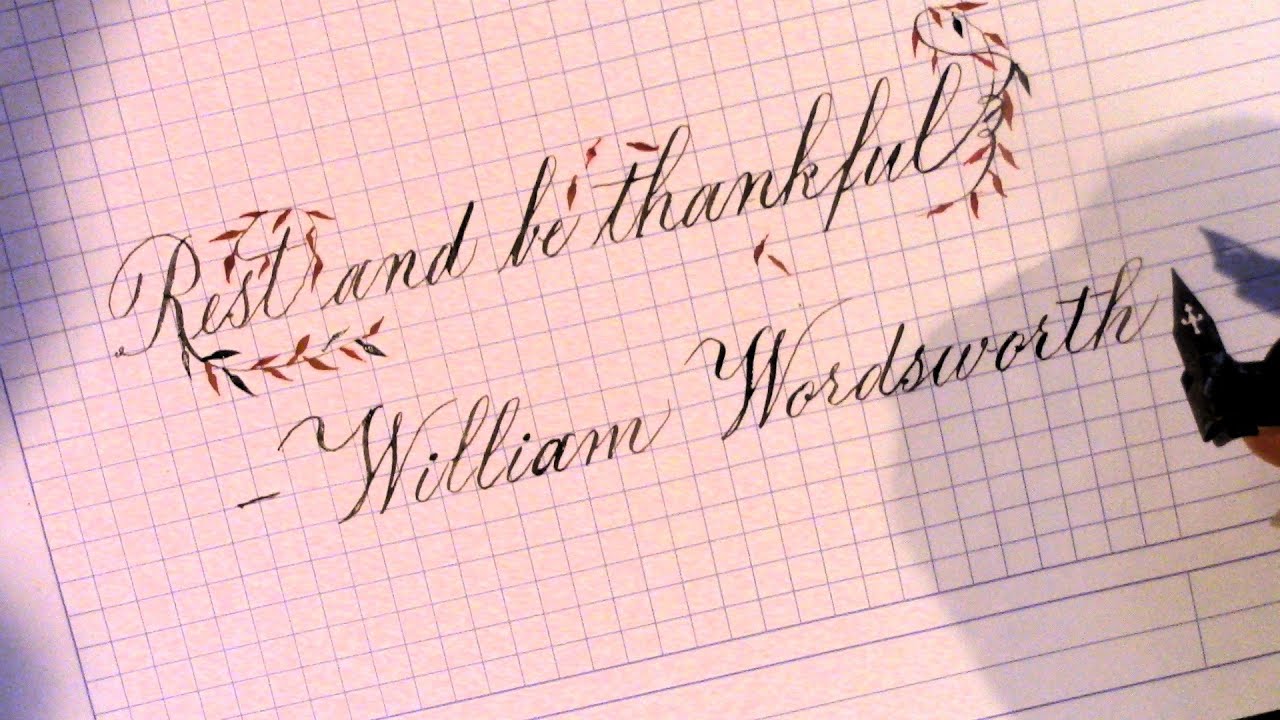 Rest and be thankful
- William Wordsworth